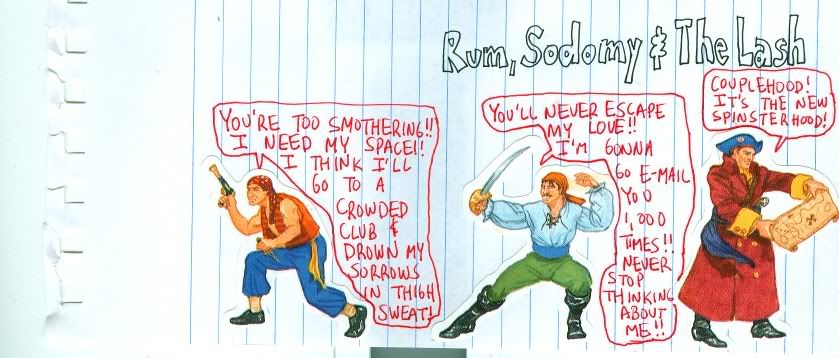 Rum, Sodomy & The Lash
YOU'RE TOO SMOTHERING!!
I NEED MY SPACE!!
I THINK I'LL
GO TO A
CROWDED
CLUB &
DROWN MY
SORROWS
IN THIGH
SWEAT!
YOU'LL NEVER ESCAPE
MY LOVE!!
I'M GONNA
GO E-MAIL
YOU
1,000
TIMES!!
NEVER
STOP
THINKING
ABOUT
ME!!
COUPLEHOOD!
IT'S THE NEW
SPINSTERHOOD!